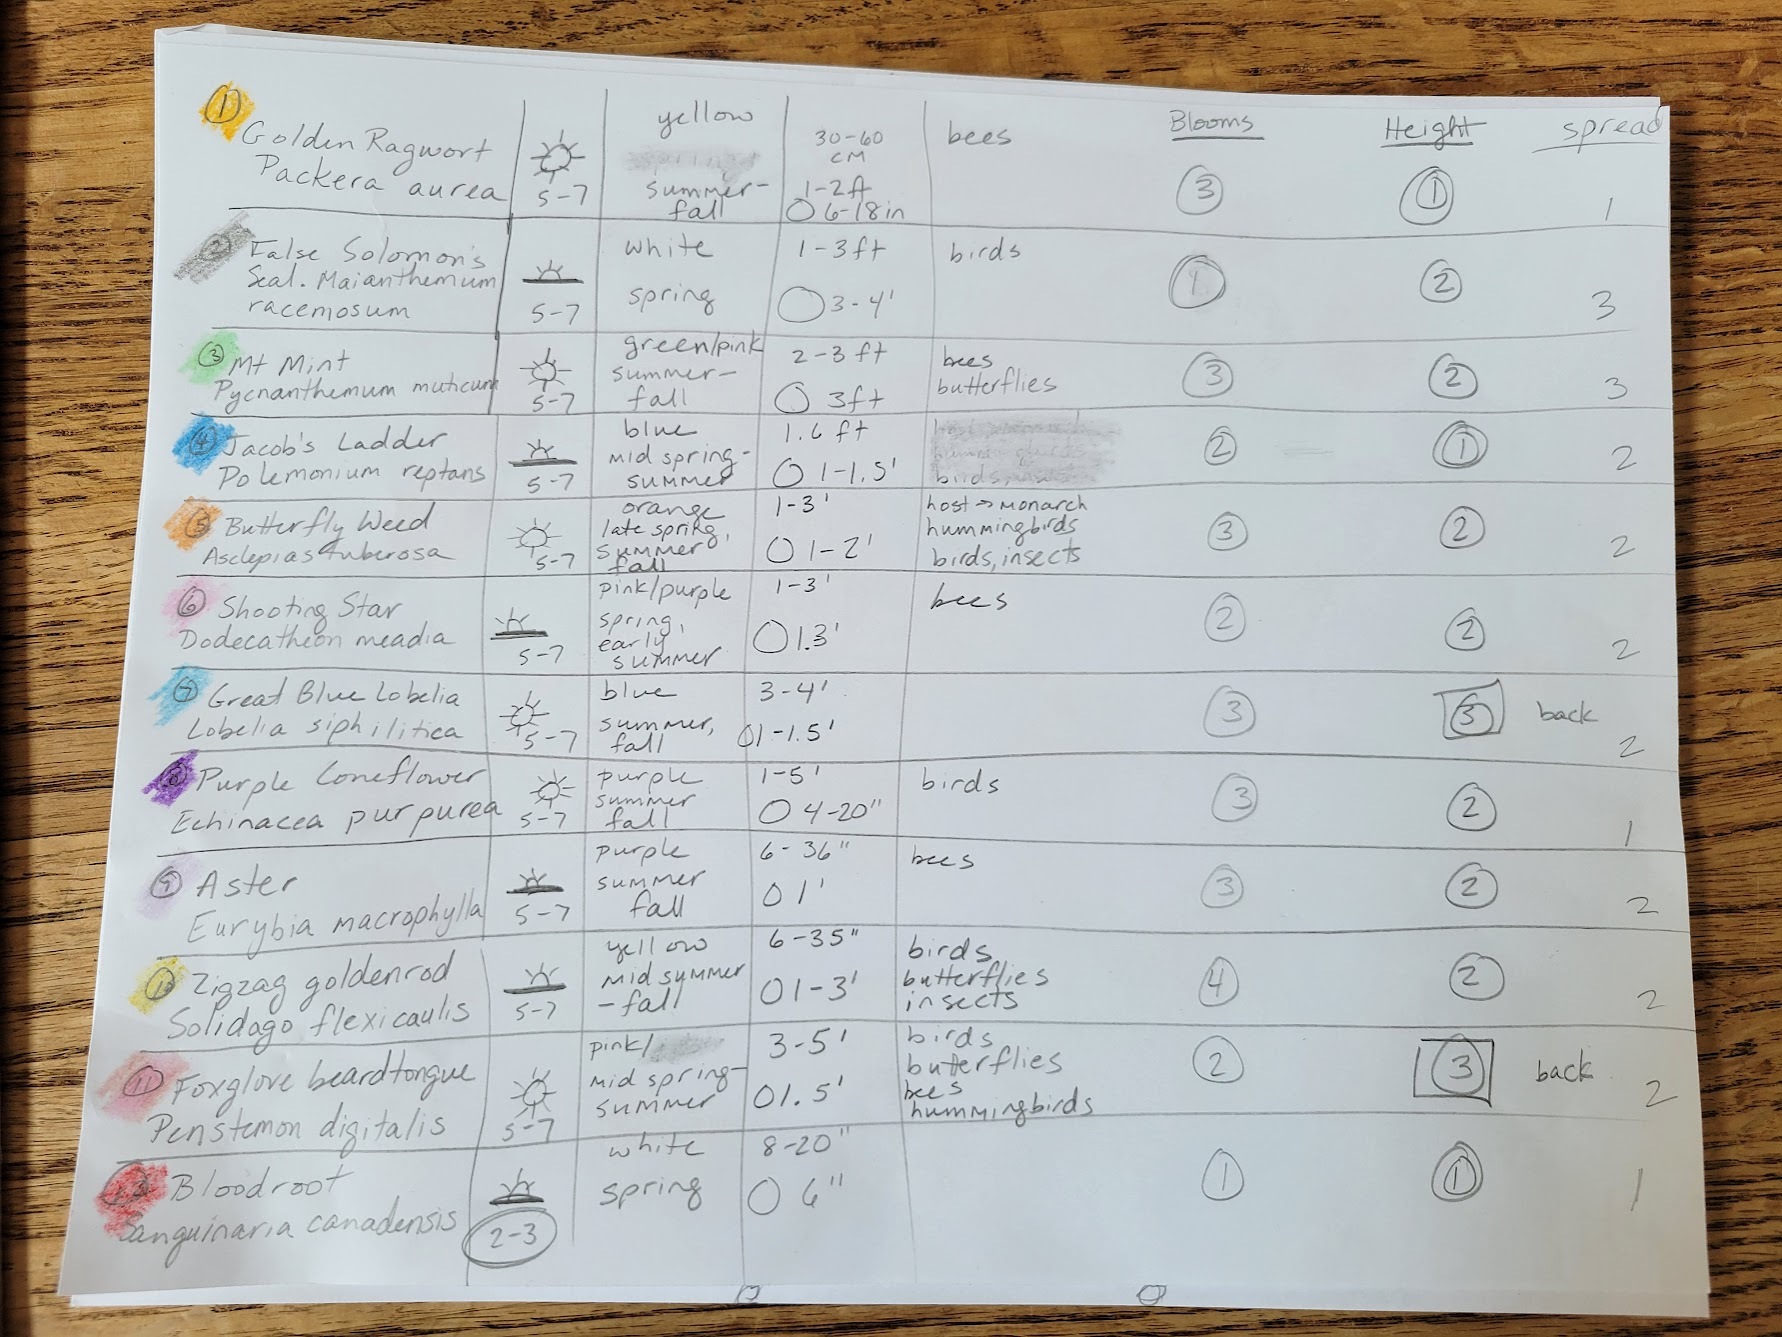 Blooms Height spread
① Golden Ragwort
Packera aurea
5-7
yellow
summer-
fall
30-60
CM
1-2ft
6-18in
bees
③ ① 1
② False Solomon's
Seal. Maianthemum
racemosum
5-7
white
spring
1-3ft
3-4'
birds
① ② 3
③ Mt Mint
Pycnanthemum muticum
5-7
green/pink
summer-
fall
2-3 ft
3ft
bees
butterflies
③ ② 3
④ Jacob's Ladder
Polemonium reptans
5-7
blue
mid spring-
summer
1.6 ft
1-1.5'
② ① 2
⑤ Butterfly Weed
Asclepias tuberosa
5-7
orange
late spring,
summer
fall
1-3'
1-2'
host → monarch
hummingbirds
birds, insects
③ ② 2
⑥ Shooting Star
Dodecatheon meadia
5-7
pink/purple
spring,
early
summer
1-3'
1.3'
bees
② ② 2
⑦ Great Blue Lobelia
Lobelia siphilitica
5-7
blue
summer,
fall
3-4'
1-1.5'
③ ③ back 2
⑧ Purple Coneflower
Echinacea purpurea
5-7
purple
summer
fall
1-5'
4-20"
birds
③ ② 1
⑨ Aster
Eurybia macrophylla
5-7
purple
summer
fall
6-36"
1'
bees
③ ② 2
⑩ Zigzag goldenrod
Solidago flexicaulis
5-7
yellow
mid summer
-fall
6-35"
1-3'
birds
butterflies
insects
④ ② 2
⑪ Foxglove beardtongue
Penstemon digitalis
5-7
pink/
mid spring-
summer
3-5'
1.5'
birds
butterflies
bees
hummingbirds
② ③ back 2
⑫ Bloodroot
Sanguinaria canadensis
2-3
white
spring
8-20"
6"
① ① 1